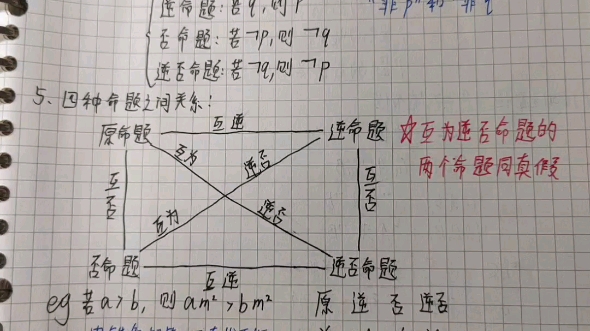 逆命题:若q,则p "非p"和"非q"
否命题:若¬p,则¬q
逆否命题:若¬q,则¬p
5、四种命题之间关系:
原命题 互逆 逆命题 ☆互为逆否命题的
两个命题同真假
互为 逆否
互否 互否
互为 逆否
否命题 互逆 逆否命题
eg 若a>b,则am²>bm² 原 逆 否 逆否